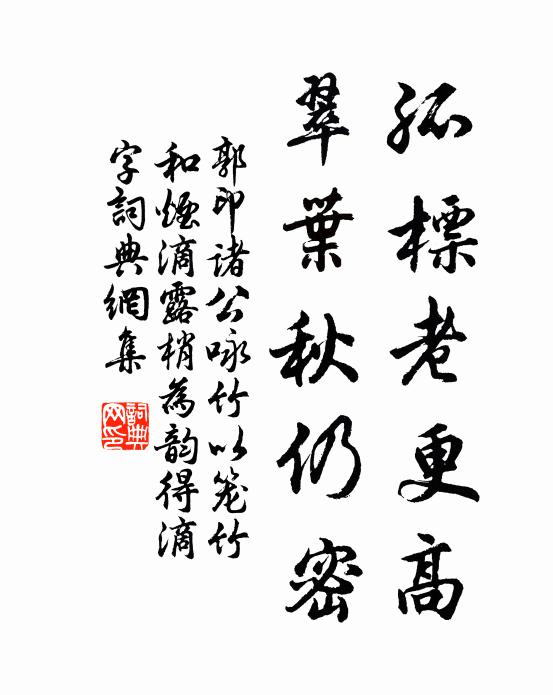 孤標老更高
翠葉秋仍密
郭印諸公咏竹以笼竹
和煙滴露梢為韵得滴
字詞典網集
詞典
网印